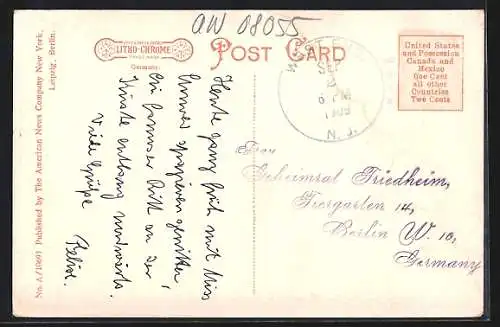 AW 08055
LITHO-CHROME
Germany.
POST CARD
United States
and Possession
Canada and
Mexico
One Cent
all other
Countries
Two Cents
SEP
6 PM
1909
N. J.
Heute ganz früh mit Miss
spazieren geritten.
Ein famoser Ritt an der
Küste entlang
Viele Grüße
Frau
Geheimrat Friedheim,
Tiergarten 14,
Berlin W. 10,
Germany
No. A/10691 Published by The American News Company New York,
Leipzig, Berlin.